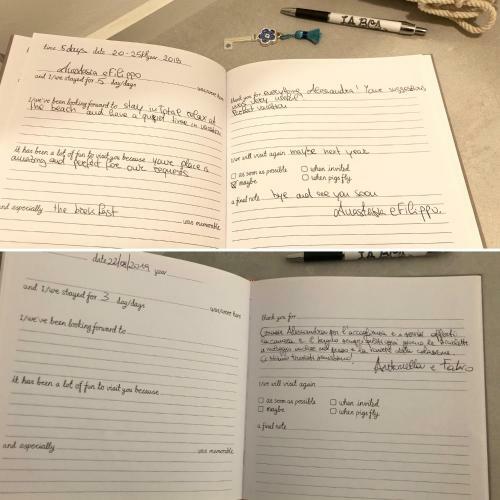 time 5 days date 20-25 year 2019
Anastasia e Filippo
was/were here
and I/we stayed for 5 day/days
I/we've been looking forward to stay in total relax at
the beach and have a quiet time in vacation
it has been a lot of fun to visit you because your place is
amazing and perfect for our requests
and especially the book fast
was memorable
thank you for everything Alessandra! Your suggestions
were very useful
Perfect vacation
I/we will visit again maybe next year
as soon as possible
when invited
maybe
when pigs fly
a final note bye and see you soon
Anastasia e Filippo.
date 22/08/2019 year
was/were here
and I/we stayed for 3 day/days
I/we've been looking forward to
it has been a lot of fun to visit you because
and especially
was memorable
thank you for
Grazie Alessandra per l'accoglienza e i servizi offerti
La camera e il bagno
Ci siamo trovati benissimo!
Antonella e Fabio
I/we will visit again
as soon as possible
when invited
maybe
when pigs fly
a final note